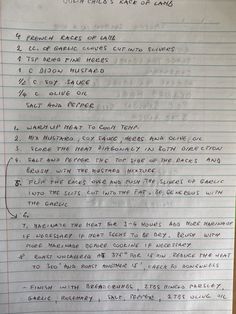 JULIA CHILD'S RACK OF LAMB
4 FRENCH RACKS OF LAMB
2 CL. OF GARLIC CLOVES CUT INTO SLIVERS
1 TSP DRIED FINE HERBS
1 C DIJON MUSTARD
1/2 C SOY SAUCE
1/4 C OLIVE OIL
SALT AND PEPPER
1. WARM UP MEAT TO ROOM TEMP.
2. MIX MUSTARD, SOY SAUCE, HERBS AND OLIVE OIL
3. SCORE THE MEAT DIAGONALY IN BOTH DIRECTION
4. SALT AND PEPPER THE TOP SIDE OF THE RACKS AND
BRUSH WITH THE MUSTARD MIXTURE
5. FLIP THE RACKS OVER AND PUSH THE SLIVERS OF GARLIC
INTO THE SLITS CUT INTO THE FAT. BE GENEROUS WITH
THE GARLIC
6.
7. MARINATE THE MEAT FOR 2-4 HOURS ADD MORE MARINADE
IF NECESSARY IF MEAT SEEMS TO BE DRY. BRUSH WITH
MORE MARINADE BEFORE COOKING IF NECESSARY
8 ROAST UNCOVERED AT 375° FOR 15 MIN REDUCE THE HEAT
TO 300° AND ROAST ANOTHER 15', CHECK FOR DONENESS
- FINISH WITH BREADCRUMBS, 2TBS MINCED PARSLEY,
GARLIC, ROSEMARY, SALT, PEPPER, 2TBS OLIVE OIL